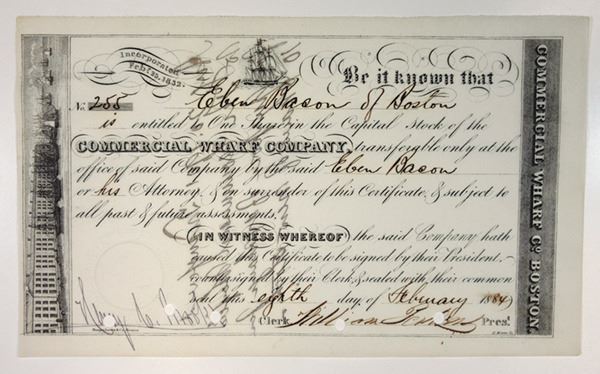 Incorporated
Feb. 15. 1832.
Be it known that
No. 255 Eben Bacon of Boston
is entitled to One Share in the Capital Stock of the
COMMERCIAL WHARF COMPANY, transferable only at the
office of said Company by the said Eben Bacon
or his Attorney, & on surrender of this Certificate, & subject to
all past & future assessments.
IN WITNESS WHEREOF the said Company hath
caused this Certificate to be signed by their President
countersigned by their Clerk, & sealed with their common
seal this eighth day of February 1849
Henry C. Clerk. William Pres.t
COMMERCIAL WHARF Co. BOSTON.